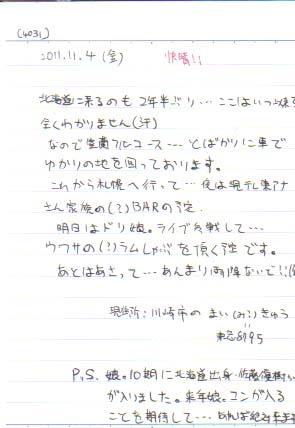 [4031]
2011.11.4 (金) 快晴!!
北海道に来るのも2年半ぶり…ここはいつ以来
全くわかりません(汗)
なので フルコース…とばかりに車で
ゆかりの地を回っております。
これから札幌へ行って…夜は現テレ東アナ
さん家族の(?)BARの予定。
明日はドリ娘。ライブ参戦して…
ウワサの(?)ラムしゃぶを頂く予定です。
あとはあさって…あんまり雨降ないで!!
現住所:川崎市の まい きゅう
東急8195
P.S. 娘。10期に北海道出身・佐藤優樹
が入りました。来年娘。コンが入る
ことを期待して…あれば絶対来ます